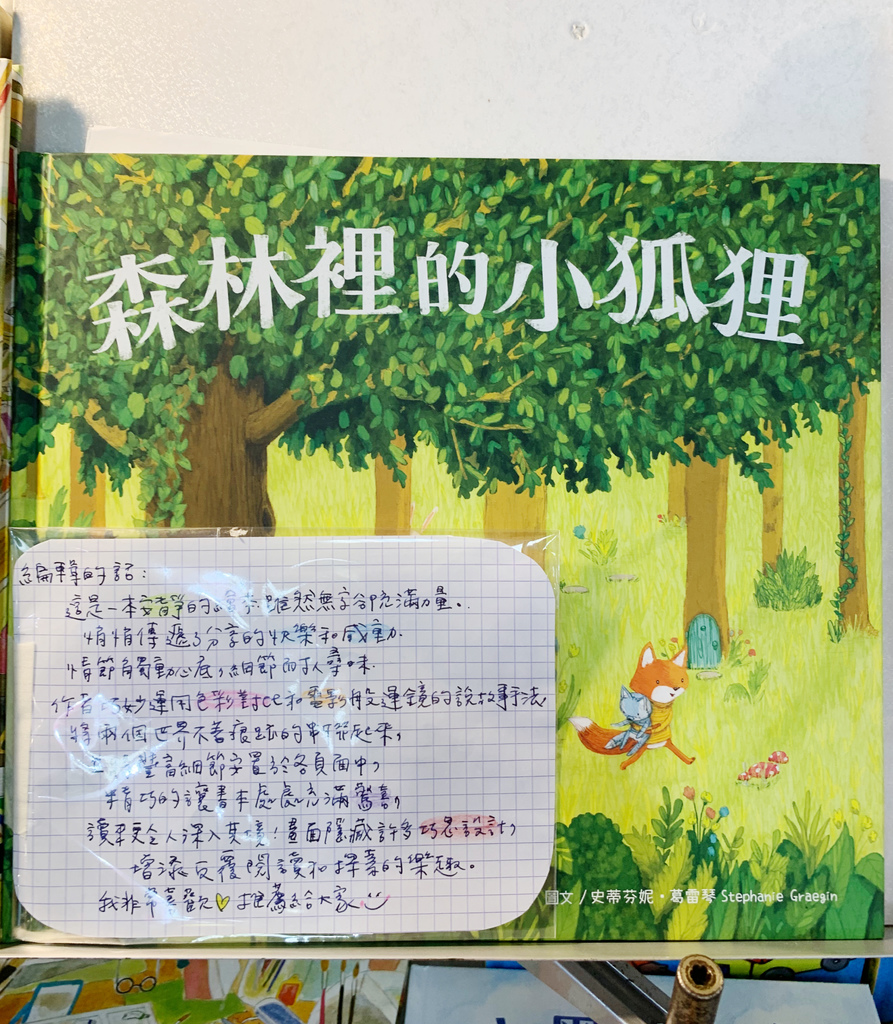 森林裡的小狐狸
編輯的話：
這是一本安靜的繪本，雖然無字卻充滿力量。
悄悄傳遞了分享的快樂和感動．
情節觸動心底，細節耐人尋味．
作者巧妙運用色彩對比和電影般運鏡的說故事手法
將兩個世界不著痕跡的串聯起來，
豐富細節安置於各頁面中，
精巧的讓書本處處充滿驚喜，
讀來更令人深入其境！畫面隱藏許多巧思設計，
增添反覆閱讀和探索的樂趣。
我非常喜歡♡推薦給大家
圖文／史蒂芬妮・葛雷琴 Stephanie Graegin